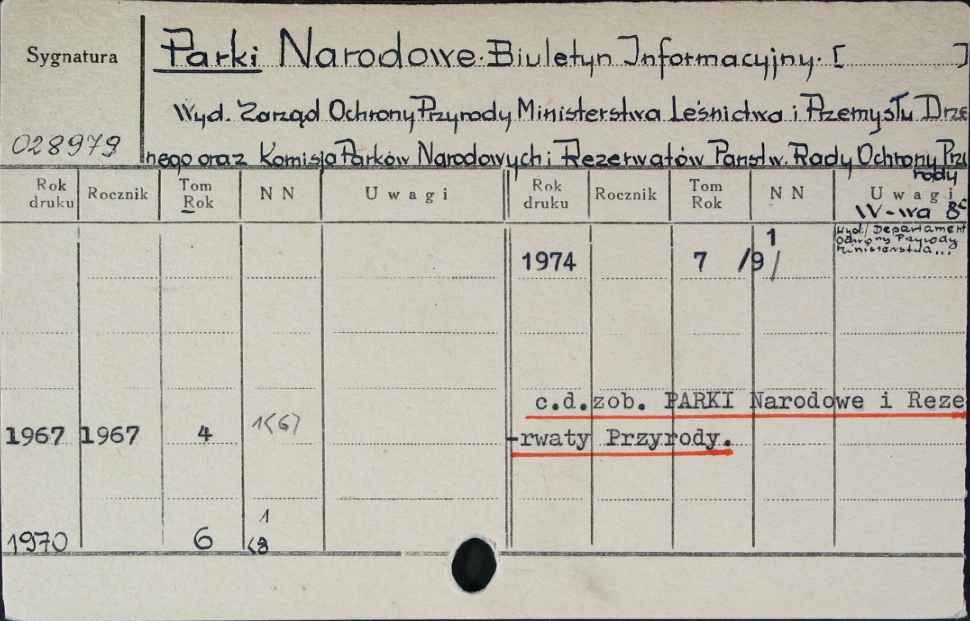 Sygnatura
Parki Narodowe. Biuletyn Informacyjny. [ ]
Wyd. Zarząd Ochrony Przyrody Ministerstwa Leśnictwa i Przemysłu Drze
028979
nego oraz Komisja Parków Narodowych i Rezerwatów Państw. Rady Ochrony Przy
rody
Rok druku Rocznik Tom Rok N N Uwagi Rok druku Rocznik Tom Rok N N Uwagi
W-wa 8°
Wyd./ Departament
Ochrony Przyrody
Ministerstwa...
1974 7 /9/ 1
c.d.zob. PARKI Narodowe i Reze
1967 1967 4 1(6)
-rwaty Przyrody.
1970 6 1
(8